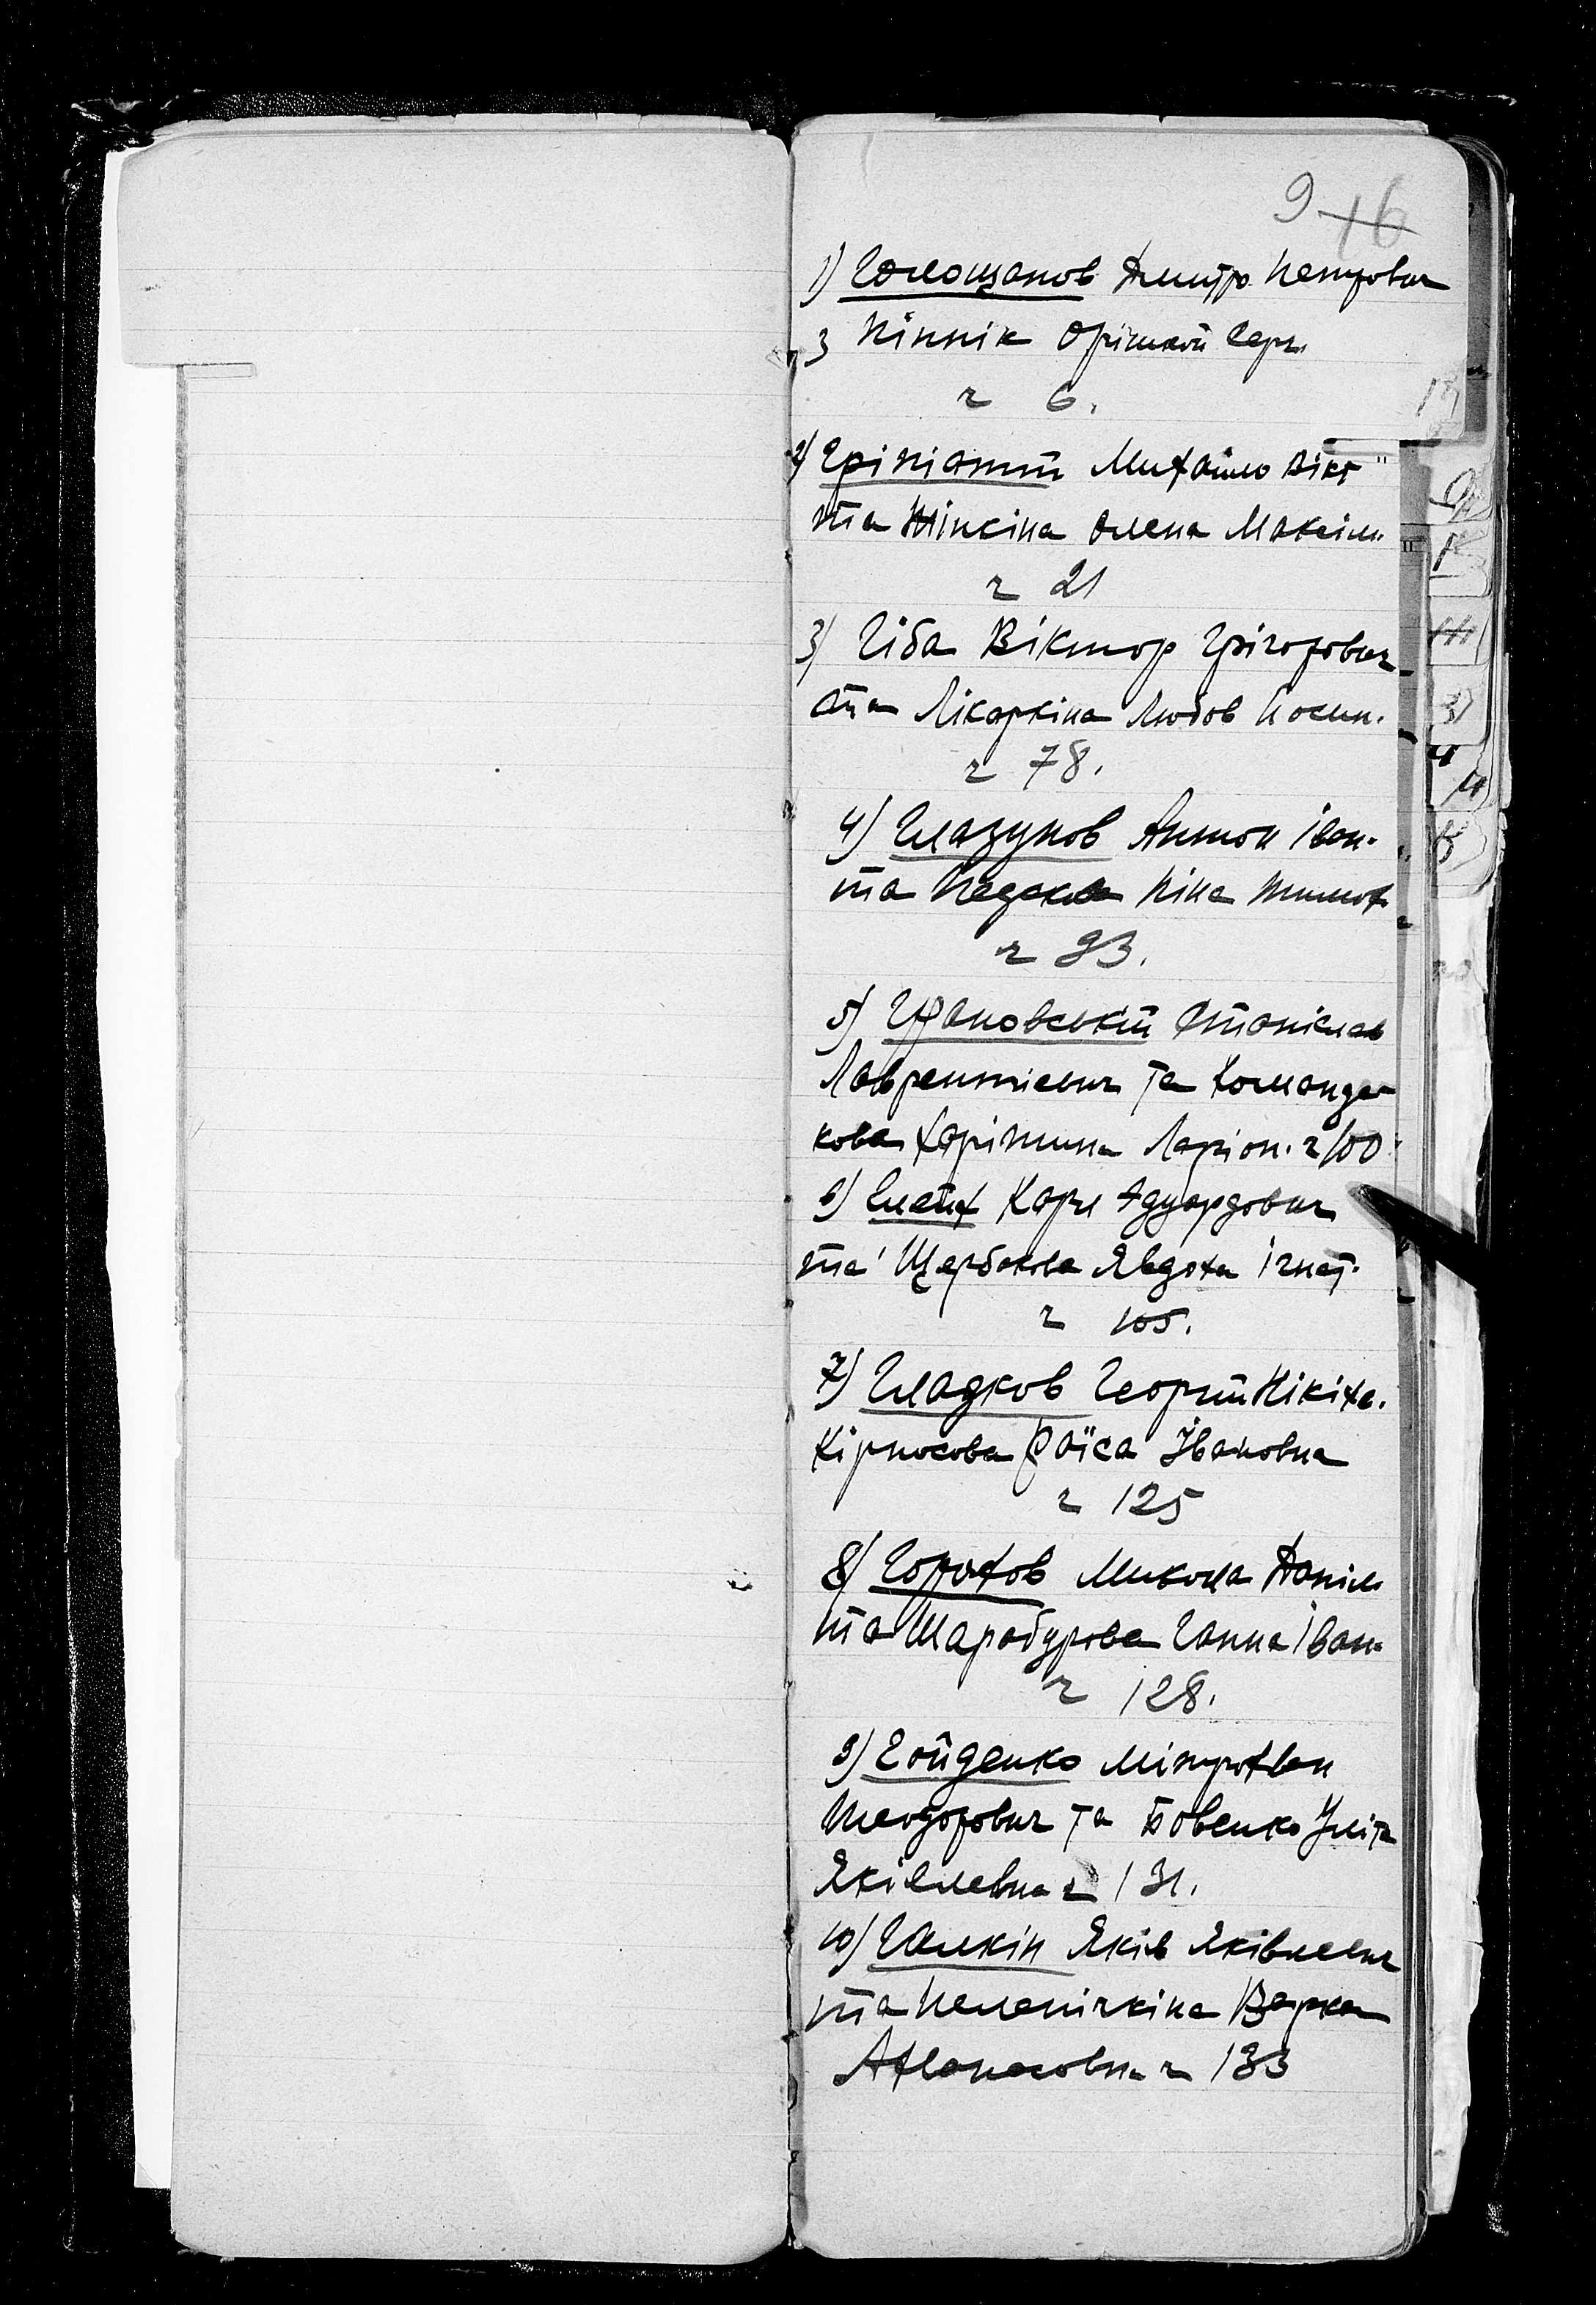 9 16
1) Голощапов Дмитро Петрович
з Піннік Орішкой Герг.
ч 6.
2) Михайло Вікт
та Тіпкіна Олена Максім.
ч 21
3) Гіба Віктор Грігорович
та Лікаркіна Любов Йосип.
ч 78.
4) Глазунов Антон Іван.
та Ніна Тимоф.
ч 93.
5) Станіслав
Лаврентіевич та Команде-
кова Харітина Ларіон. ч 100
6) Карл Эдуардович
та Щербакова Явдоха Ігнат.
ч 105.
7) Гладков Георгій Нікіта.
Кірносова Раїса Івановна
ч 125
8) Горохов Микола Даніл.
та Шарабурова Ганна Іван.
ч 128.
9) Гойденко Мітрофан
Теодорович та Бовенко Уліта
Яківлевна ч 131.
10) Галкін Яків Яківлевич
та Варка
Афанасовна ч 133